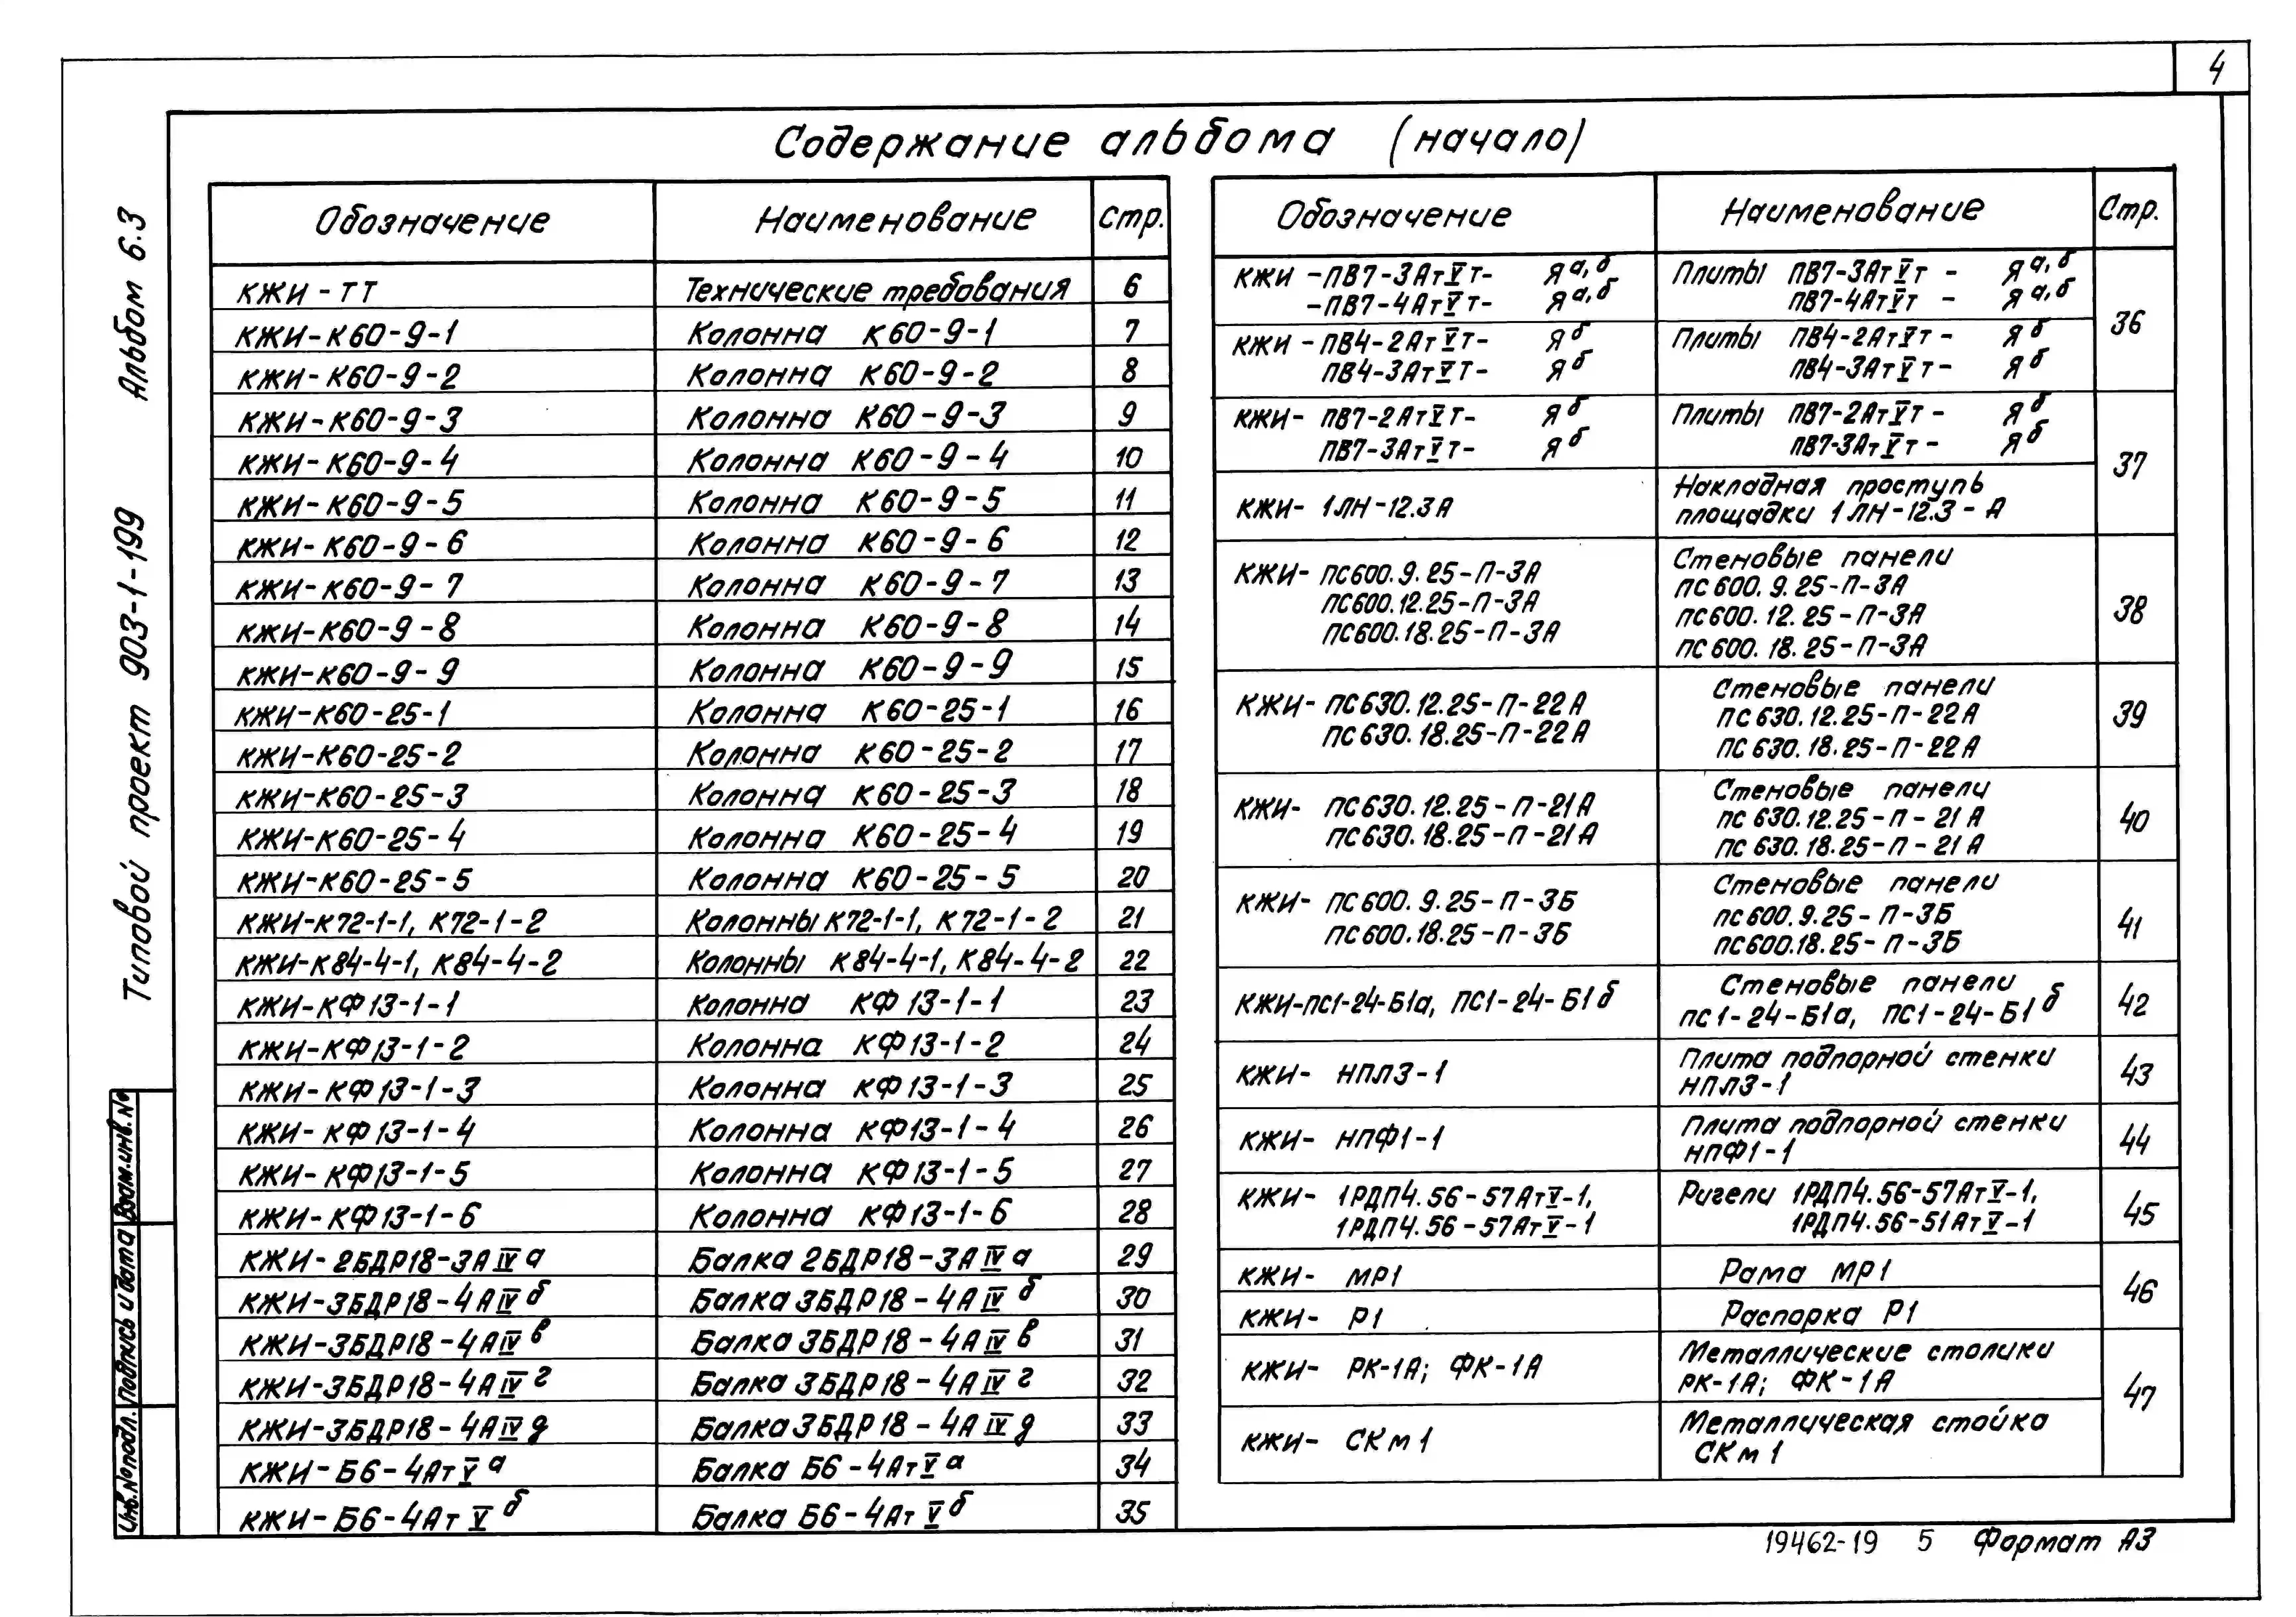 4
Содержание альбома (начало)
Типовой проект 903-1-199 Альбом 6.3
Обозначение Наименование Стр.
КЖИ-ТТ Технические требования 6
КЖИ-К60-9-1 Колонна К60-9-1 7
КЖИ-К60-9-2 Колонна К60-9-2 8
КЖИ-К60-9-3 Колонна К60-9-3 9
КЖИ-К60-9-4 Колонна К60-9-4 10
КЖИ-К60-9-5 Колонна К60-9-5 11
КЖИ-К60-9-6 Колонна К60-9-6 12
КЖИ-К60-9-7 Колонна К60-9-7 13
КЖИ-К60-9-8 Колонна К60-9-8 14
КЖИ-К60-9-9 Колонна К60-9-9 15
КЖИ-К60-25-1 Колонна К60-25-1 16
КЖИ-К60-25-2 Колонна К60-25-2 17
КЖИ-К60-25-3 Колонна К60-25-3 18
КЖИ-К60-25-4 Колонна К60-25-4 19
КЖИ-К60-25-5 Колонна К60-25-5 20
КЖИ-К72-1-1, К72-1-2 Колонны К72-1-1, К72-1-2 21
КЖИ-К84-4-1, К84-4-2 Колонны К84-4-1, К84-4-2 22
КЖИ-КФ13-1-1 Колонна КФ13-1-1 23
КЖИ-КФ13-1-2 Колонна КФ13-1-2 24
КЖИ-КФ13-1-3 Колонна КФ13-1-3 25
КЖИ-КФ13-1-4 Колонна КФ13-1-4 26
КЖИ-КФ13-1-5 Колонна КФ13-1-5 27
КЖИ-КФ13-1-6 Колонна КФ13-1-6 28
КЖИ-2БДР18-3АIVа Балка 2БДР18-3АIVа 29
КЖИ-3БДР18-4АIVб Балка 3БДР18-4АIVб 30
КЖИ-3БДР18-4АIVв Балка 3БДР18-4АIVв 31
КЖИ-3БДР18-4АIVг Балка 3БДР18-4АIVг 32
КЖИ-3БДР18-4АIVд Балка 3БДР18-4АIVд 33
КЖИ-Б6-4АтVа Балка Б6-4АтVа 34
КЖИ-Б6-4АтVб Балка Б6-4АтVб 35
Обозначение Наименование Стр.
КЖИ-ПВ7-3АтVт- Яа,б Плиты ПВ7-3АтVт - Яа,б
-ПВ7-4АтVт- Яа,б ПВ7-4АтVт - Яа,б
36
КЖИ-ПВ4-2АтVт- Яб Плиты ПВ4-2АтVт - Яб
ПВ4-3АтVт- Яб ПВ4-3АтVт - Яб
КЖИ- ПВ7-2АтVт- Яб Плиты ПВ7-2АтVт - Яб
ПВ7-3АтVт- Яб ПВ7-3АтVт - Яб
37
КЖИ- 1ЛН-12.3А Накладная проступь
площадки 1ЛН-12.3-А
КЖИ- ПС600.9.25-П-3А Стеновые панели
ПС600.12.25-П-3А ПС600.9.25-П-3А
ПС600.18.25-П-3А ПС600.12.25-П-3А 38
ПС600.18.25-П-3А
КЖИ- ПС630.12.25-П-22А Стеновые панели
ПС630.18.25-П-22А ПС630.12.25-П-22А 39
ПС630.18.25-П-22А
КЖИ- ПС630.12.25-П-21А Стеновые панели
ПС630.18.25-П-21А ПС630.12.25-П-21А 40
ПС630.18.25-П-21А
КЖИ- ПС600.9.25-П-3Б Стеновые панели
ПС600.18.25-П-3Б ПС600.9.25-П-3Б 41
ПС600.18.25-П-3Б
КЖИ-ПС1-24-Б1а, ПС1-24-Б1б Стеновые панели 42
ПС1-24-Б1а, ПС1-24-Б1б
КЖИ- НПЛ3-1 Плита подпорной стенки 43
НПЛ3-1
КЖИ- НПФ1-1 Плита подпорной стенки 44
НПФ1-1
КЖИ- 1РДП4.56-57АтV-1, Ригели 1РДП4.56-57АтV-1, 45
1РДП4.56-57АтV-1 1РДП4.56-51АтV-1
КЖИ- МР1 Рама МР1
46
КЖИ- Р1 Распорка Р1
КЖИ- РК-1А; ФК-1А Металлические столики
РК-1А; ФК-1А
47
КЖИ- СКм1 Металлическая стойка
СКм1
Инв.№ подл. Подпись и дата Взам.инв.№
19462-19 5 Формат А3